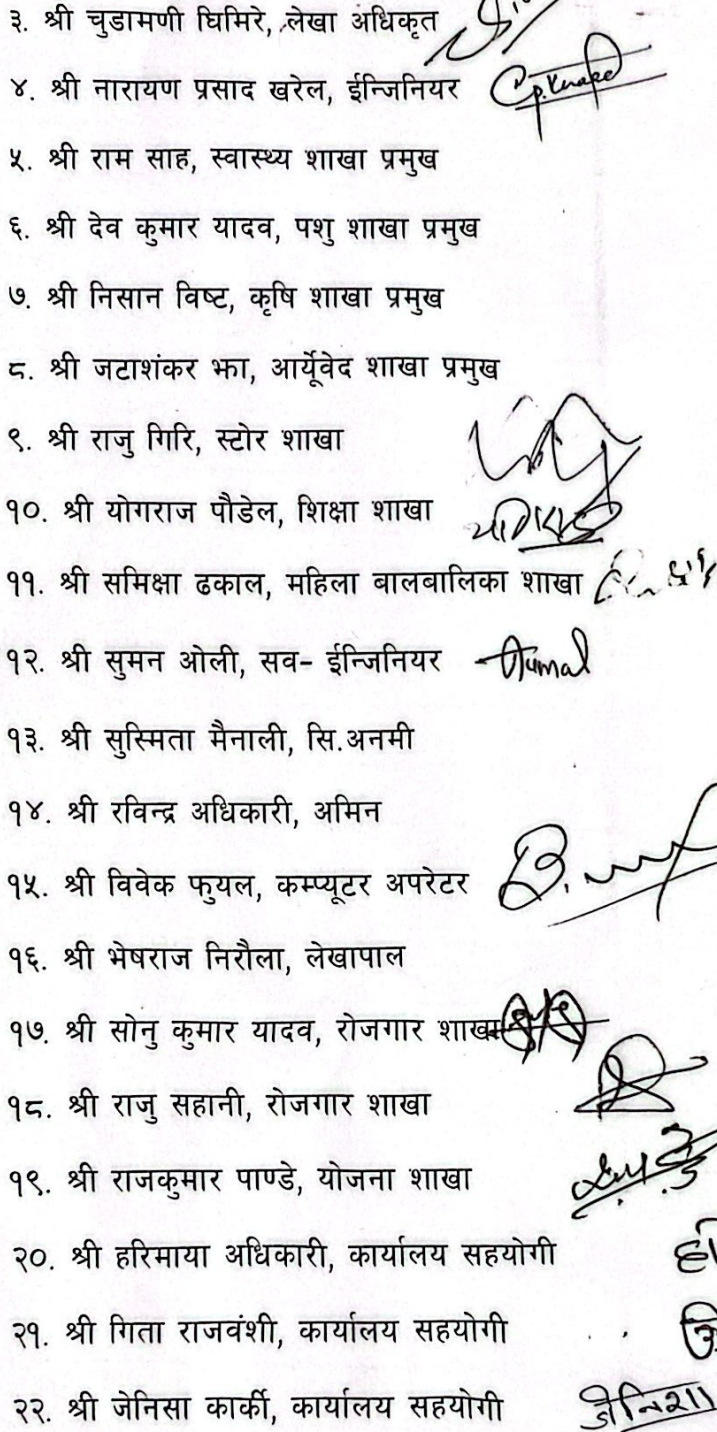 ३. श्री चुडामणी घिमिरे, लेखा अधिकृत
४. श्री नारायण प्रसाद खरेल, ईन्जिनियर
५. श्री राम साह, स्वास्थ्य शाखा प्रमुख
६. श्री देव कुमार यादव, पशु शाखा प्रमुख
७. श्री निसान विष्ट, कृषि शाखा प्रमुख
८. श्री जटाशंकर झा, आर्यूवेद शाखा प्रमुख
९. श्री राजु गिरि, स्टोर शाखा
१०. श्री योगराज पौडेल, शिक्षा शाखा
११. श्री समिक्षा ढकाल, महिला बालबालिका शाखा
१२. श्री सुमन ओली, सव- ईन्जिनियर
१३. श्री सुस्मिता मैनाली, सि.अनमी
१४. श्री रविन्द्र अधिकारी, अमिन
१५. श्री विवेक फुयल, कम्प्यूटर अपरेटर
१६. श्री भेषराज निरौला, लेखापाल
१७. श्री सोनु कुमार यादव, रोजगार शाखा
१८. श्री राजु सहानी, रोजगार शाखा
१९. श्री राजकुमार पाण्डे, योजना शाखा
२०. श्री हरिमाया अधिकारी, कार्यालय सहयोगी
२१. श्री गिता राजवंशी, कार्यालय सहयोगी
२२. श्री जेनिसा कार्की, कार्यालय सहयोगी जेनिशा